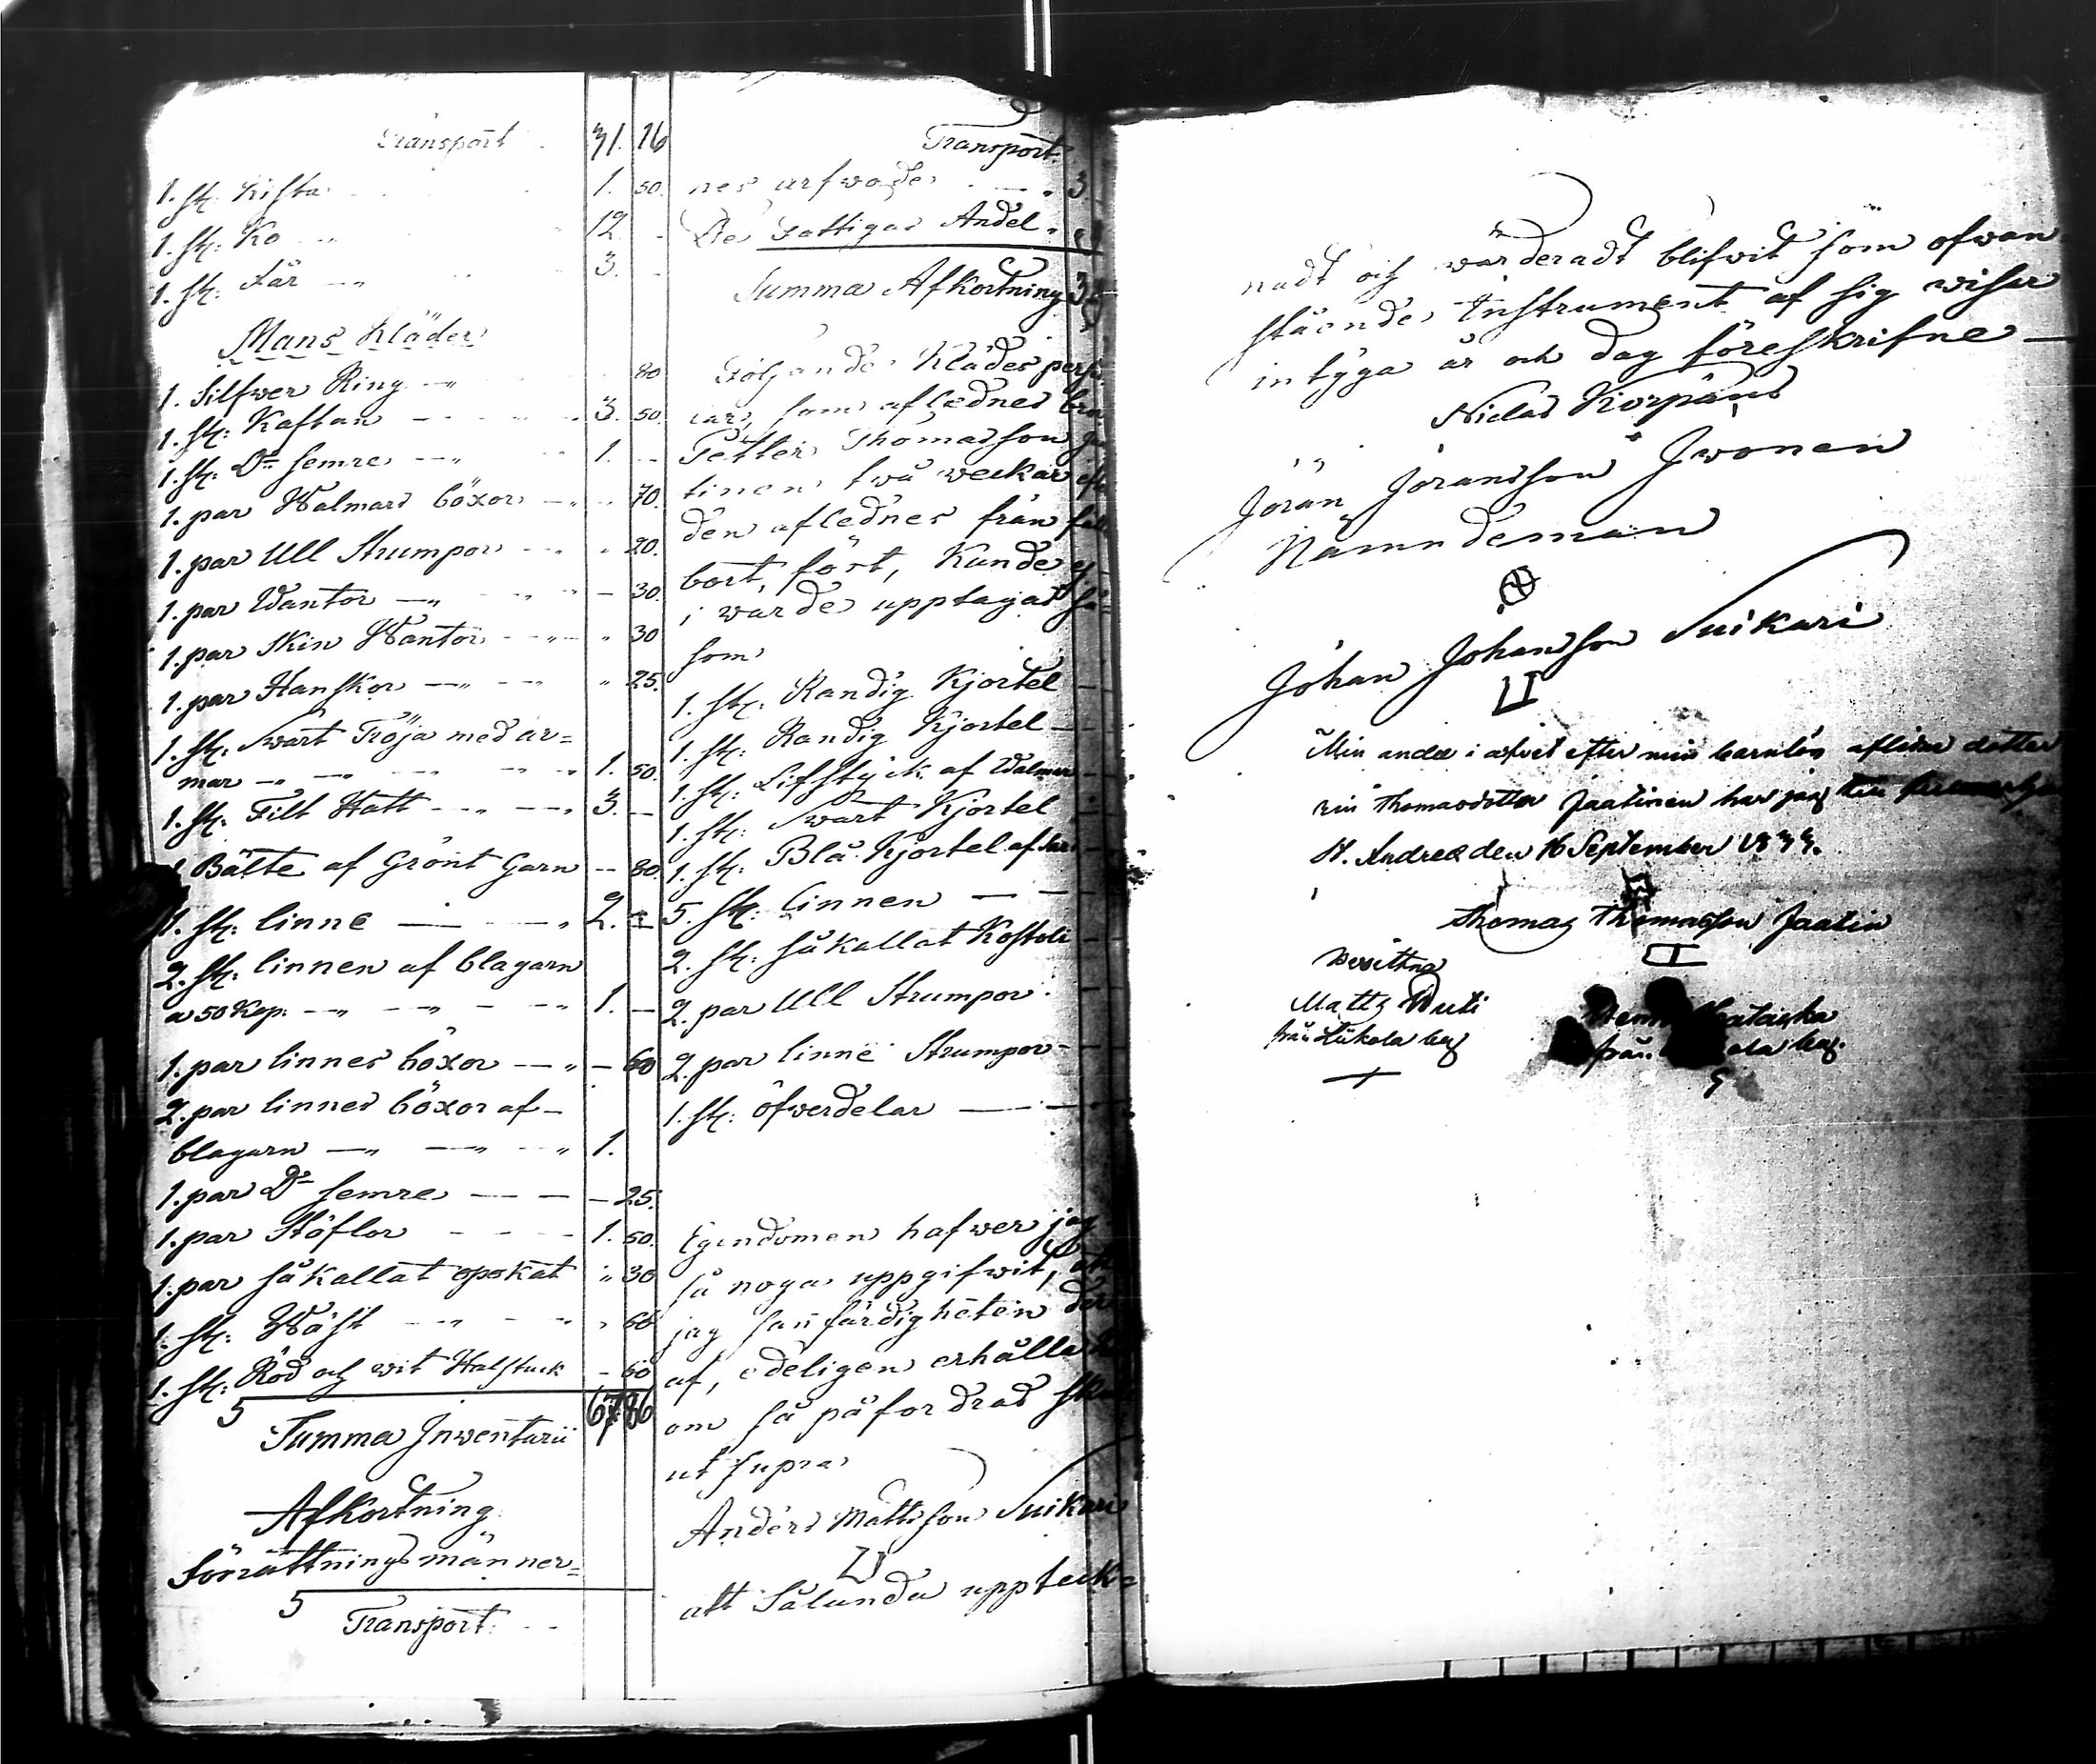 Transport 31. 16
1. st: Kista 1. 50.
1. st: Ko 12. -
1. st: Får 3. -
Mans Kläder
1. Silfwer Ring 80
1. st: Kaftan 3. 50.
1. st: Do semre 1. -
1. par Walmars böxor 70.
1. par Ull Strumpor 20.
1. par Wantor 30.
1. par Skin Wantor 30
1. par Hanskor 25.
1. st: Swart Tröja med ar=
mar 1. 50.
1. st: Filt Hatt 3. -
1 Bälte af Grönt Garn 80.
1. st: linne 2. -
2. st: linnen af blagarn
a 50 Kop. 1. -
1. par linnes böxor 60
2. par linnes böxor af -
blagarn 1.
1. par Do semre 25.
1. par Stöflor 1. 50.
1. par så kallat opokat 30
1. st: Wäst 60
1. st: Röd och wit Halstuck 60
Summa Inwentarii 67 86
Afkortning
Förrättnings männer=
Transport
Transport
nes arfwode 3.
De Fattigas Andel
Summa Afkortning 3
Följande Kläder
som aflednes
Petter Thomasson
tinen twå weckar
den aflednes från
bort, fört, Kunde ej
i warde upptagas så=
som
1. st: Randig Kjortel -
1. st: Randig Kjortel -
1. st: Lifstyck af Walmar
1. st: Swart Kjortel
1. st: Blå Kjortel af
5. st: linnen -
2. st: så kallat Kostoli
2. par Ull Strumpor
2. par linne Strumpor -
1. st: öfwerdelar -
Egendomen hafwer jag
så noga uppgifwit, att
jag sanfärdigheten der
af, edeligen erhålla
om så påfordras
ut supra
Anders Mattsson Suikari
att Sålunda uppteck=
nadt och wärderadt blifwit som ofwan
stående Instrument af sig wiser
intyga år och dag föreskrifne -
Niclas Korpäus
Jöran Joransson Iwonen
Nämndeman
Johan Johansson Suikari
Min andel i arfvet efter min barnlös aflidne dotter
Thomasdotter Jaatinen har jag
St. Andreæ den 16 September 1844.
Thomas Thomasson Jaatin
Wosittna
Matts
från Lükola by
från by.